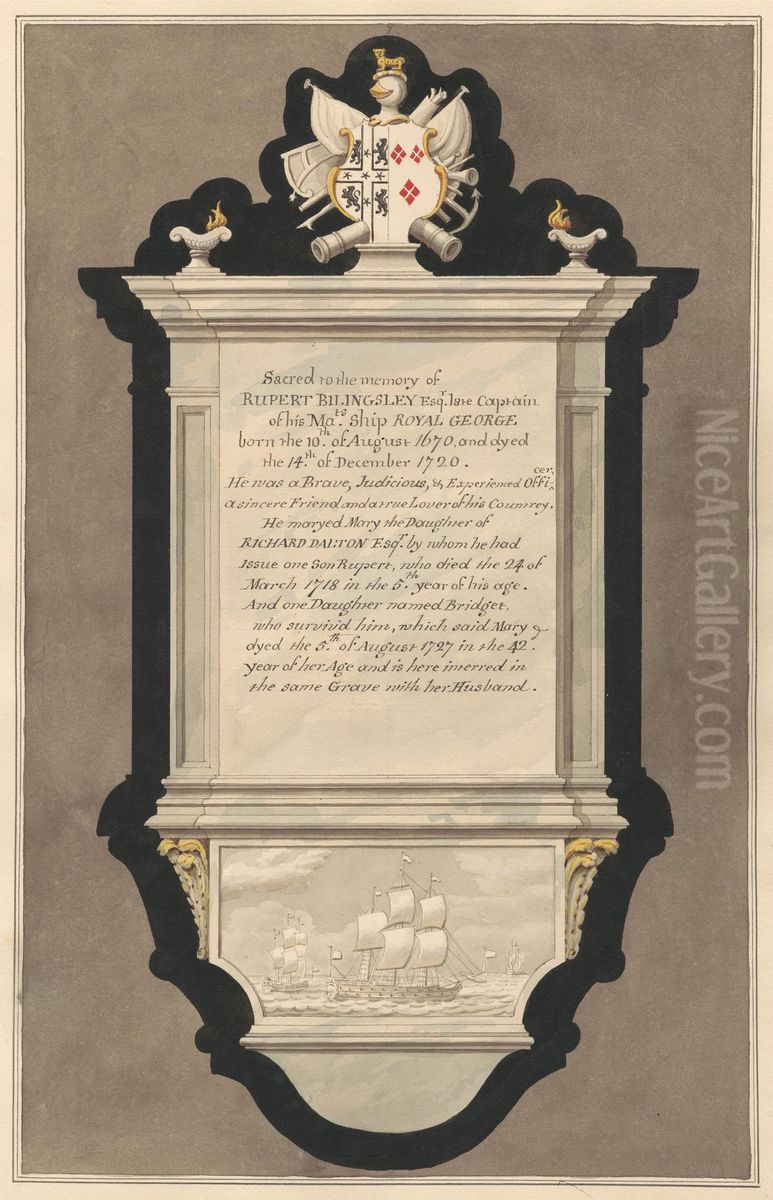 Sacred to the memory of
RUPERT BILINGSLEY Esqr. late Captain
of his Mats. Ship ROYAL GEORGE
born the 10th. of August 1670, and dyed
the 14th. of December 1720.
He was a Brave, Judicious, & Experienced Officer,
a sincere Friend and a true Lover of his Countrey.
He maryed Mary the Daughter of
RICHARD DALTON Esqr. by whom he had
Issue one Son Rupert, who died the 24 of
March 1718 in the 5th. year of his age.
And one Daughter named Bridget,
who surviv'd him, which said Mary
dyed the 5th. of August 1727 in the 42d.
year of her Age and is here interred in
the same Grave with her Husband.
NiceArtGallery.com